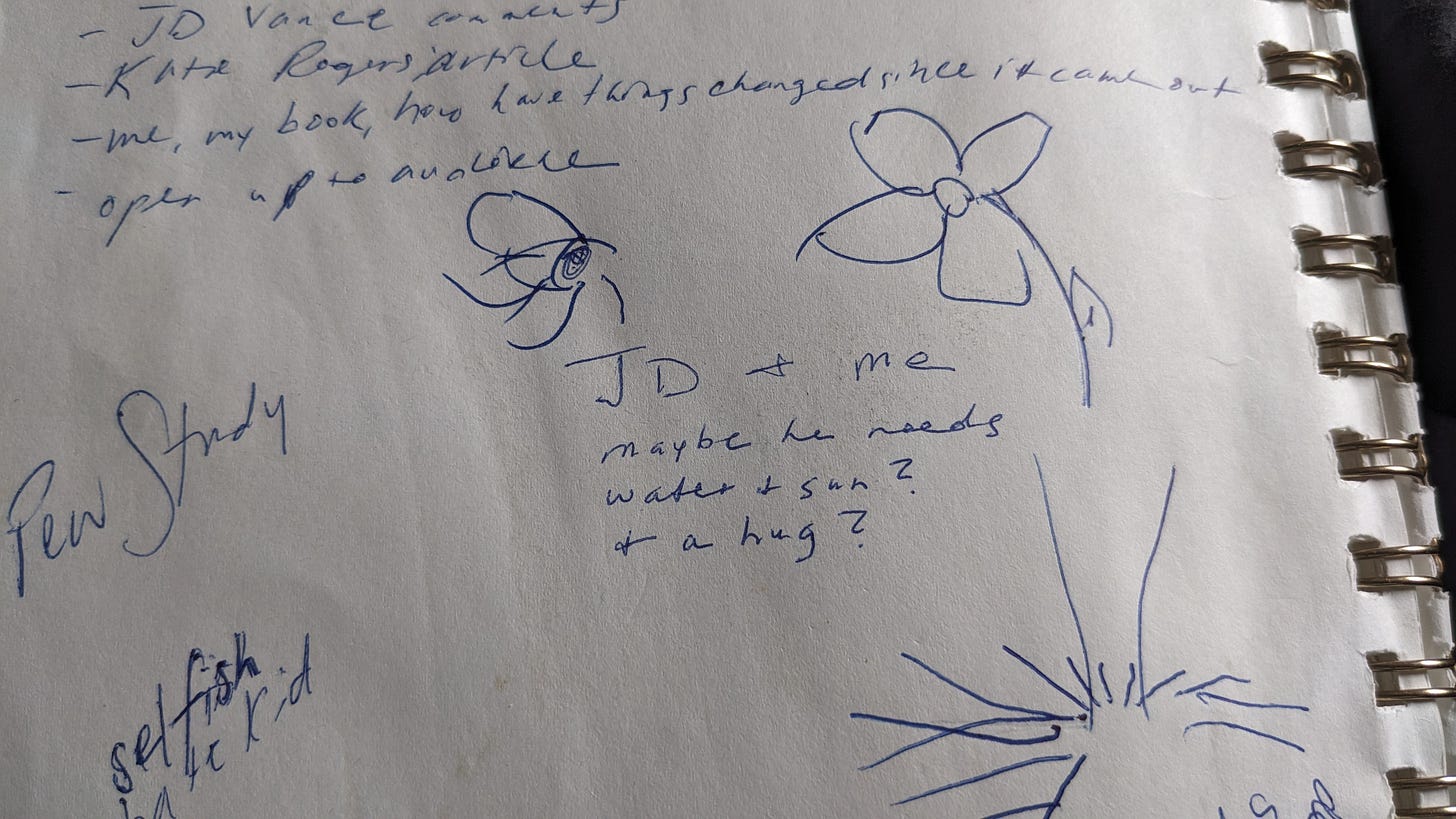 - JD Vance comments
- Katie Rogers' article
- me, my book, how have things changed since it came out
- open up to audience
JD + me
maybe he needs
water + sun?
+ a hug?
Pew Study
selfish
Kid